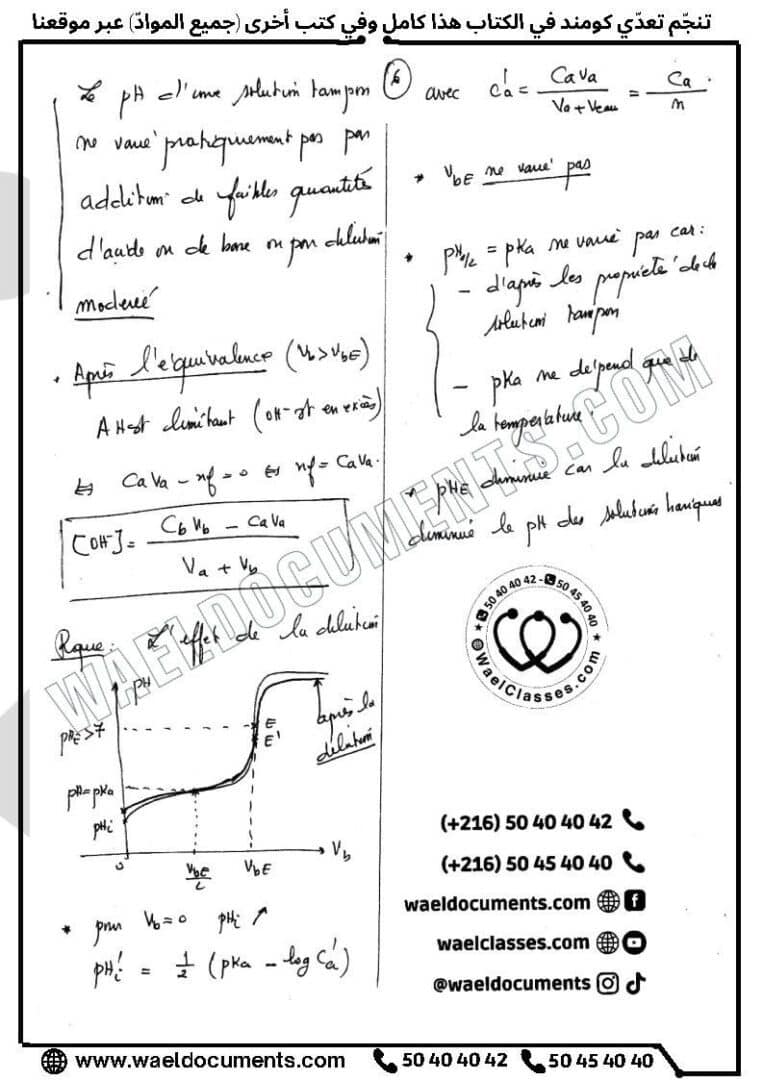 تنجّم تعدّي كومند في الكتاب هذا كامل وفي كتب أخرى (جميع الموادّ) عبر موقعنا
6
Le pH d'une solution tampon
ne varie pratiquement pas par
addition de faibles quantités
d'acide ou de base ou par dilution
moderée
• Après l'équivalence (Vb > VbE)
AH est limitant (OH⁻ est en excès)
⇔ CaVa - xf = 0 ⇔ xf = CaVa.
[OH⁻] = (CbVb - CaVa) / (Va + Vb)
Rque: L'effet de la dilution
pH
pHE>7
E
E'
après la
dilution
pH=pKa
pHi
0
VbE/2
VbE
Vb
* pour Vb=0 pHi ↗
pHi' = 1/2 (pKa - log Ca')
avec Ca' = CaVa / (Va + Veau) = Ca / n
* VbE ne varie pas
* pH1/2 = pKa ne varie pas car:
- d'après les propriété de la
solution tampon
- pKa ne dépend que de
la température.
* pHE diminue car la dilution
diminue le pH des solutions basiques
WAELDOCUMENTS.COM
50 40 40 42 - 50 45 40 40
WaelClasses.com
(+216) 50 40 40 42
(+216) 50 45 40 40
waeldocuments.com
waelclasses.com
@waeldocuments
www.waeldocuments.com 50 40 40 42 50 45 40 40